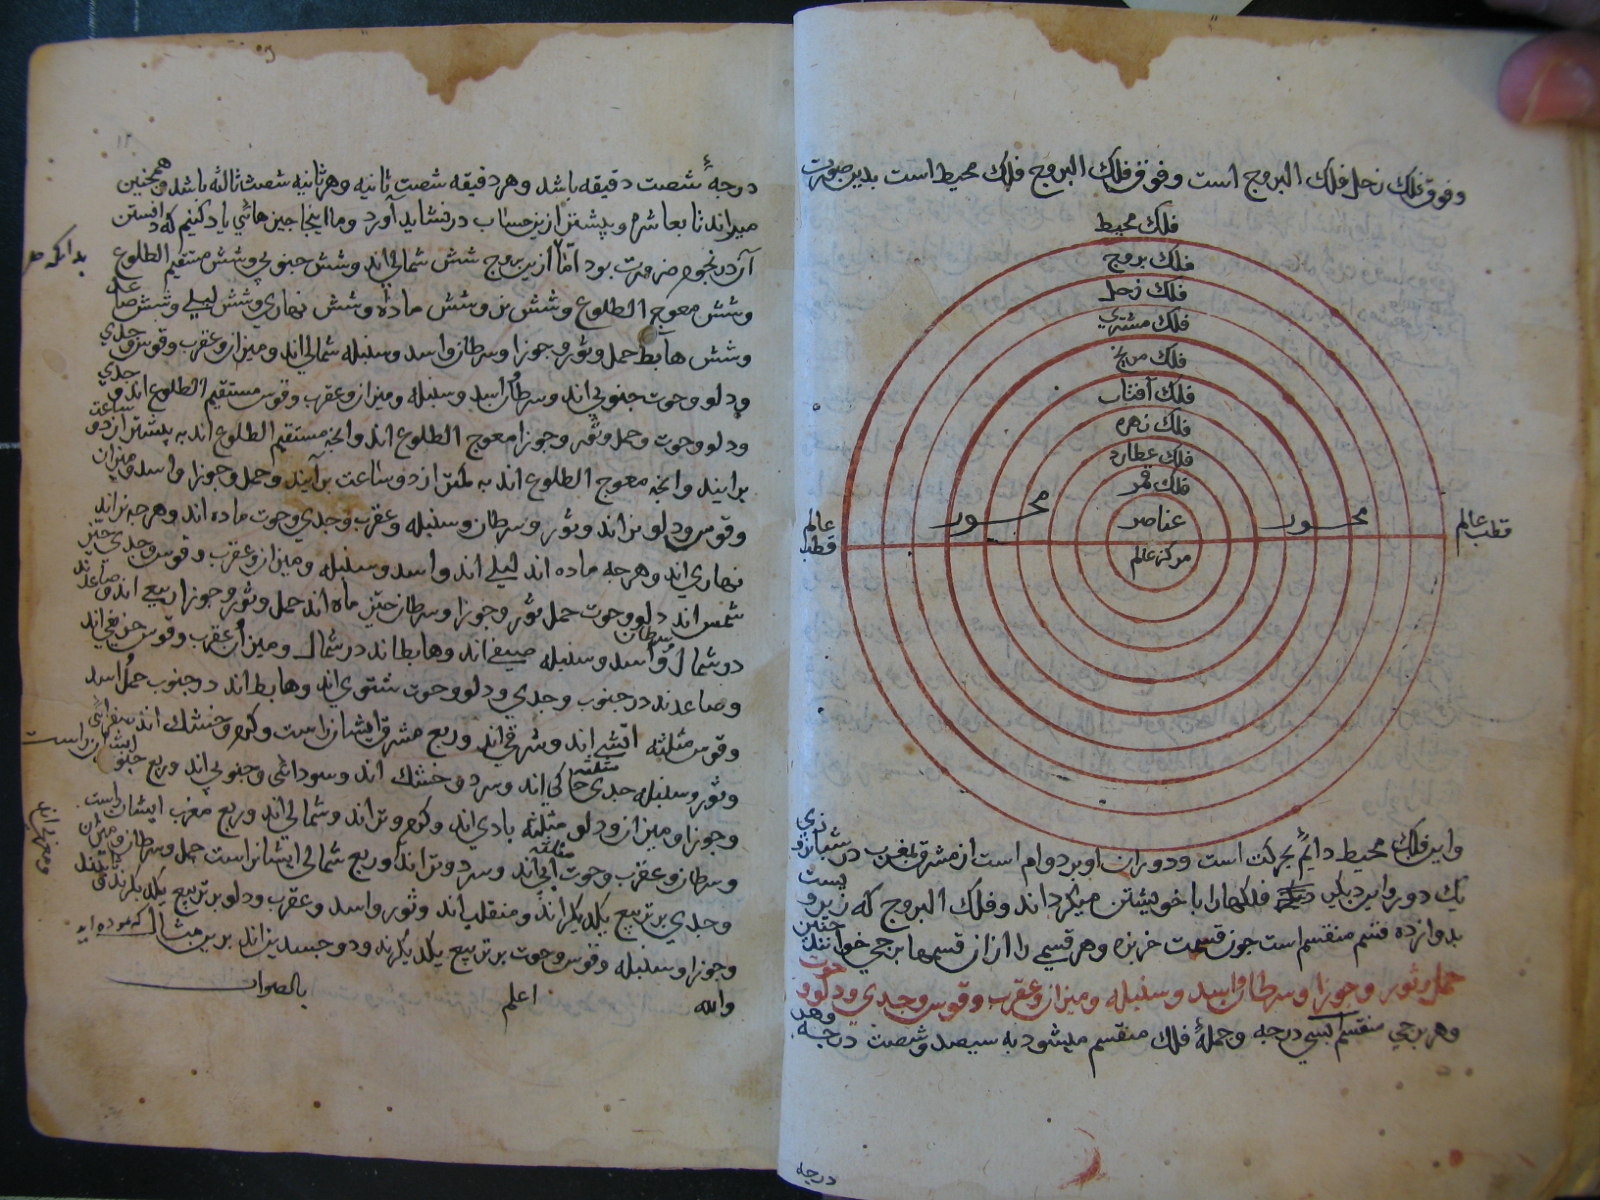 وفوق فلک زحل فلک البروج است وفوق فلک البروج فلک محیط است بدین صورت
فلک محیط
فلک بروج
فلک زحل
فلک مشتري
فلک مریخ
فلک آفتاب
فلک زهره
فلک عطارد
فلک قمر
عناصر
مرکز عالم
محور
محور
قطب عالم
عالم قطب
واین فلک محیط دائم بحرکت است ودوران او بر دوام است از مشرق بمغرب در شبانروزي
یک دور واین دیگر فلکها را با خویشتن میگرداند وفلک البروج که زیر و بست
بدوازده قسم منقسم است جون قسمت خربزه وهر قسمي را ازان قسمها برجي خوانند جنین
حمل وثور وجوزا وسرطان واسد وسنبله ومیزان وعقرب وقوس وجدي ودلو و حوت
وهر برجي منقسم بسي درجه وجملهٔ فلک منقسم میشود به سیصد وشصت درجه وهر
درجه
درجهٔ شصت دقیقه باشد وهر دقیقه شصت ثانیه وهر ثانیه شصت ثالثه باشد وهمجنین
میراند تا بعاشره وبیشتر ازین حساب در نشاید آورد وما اینجا جیزهائي یاد کنیم که دانستن
آن در نجوم ضرورت بود اما ازین بروج شش شمالي اند وشش جنوبي وشش مستقیم الطلوع
بدانکه هر
وشش معوج الطلوع وشش نر وشش ماده وشش نهاري وشش لیلي وشش صاعد
وشش هابط حمل وثور وجوزا وسرطان واسد وسنبله شمالي اند ومیزان وعقرب وقوس وجدي
ودلو وحوت جنوبي اند وسرطان واسد وسنبله ومیزان وعقرب وقوس مستقیم الطلوع اند و جدي
ودلو وحوت وحمل وثور وجوزا معوج الطلوع اند وانجه مستقیم الطلوع اند به بیشتر از دو ساعت
برایند وانجه معوج الطلوع اند به کمتر از دو ساعت برآیند وحمل وجوزا واسد ومیزان
وقوس ودلو نر اند وثور وسرطان وسنبله وعقرب وجدي وحوت ماده اند وهرجه نر اند
نهاري اند وهرجه ماده اند لیلي اند واسد وسنبله ومیزان وعقرب وقوس وجدي حیز
شمس اند دلو وحوت حمل ثور وجوزا وسرطان حیز ماه اند حمل وثور وجوزا ربیعي اند وصاعدند
در شمال و سرطان واسد وسنبله صیفي اند وهابط اند در شمال ومیزان وعقرب وقوس خریفي اند
وصاعدند در جنوب وجدي ودلو وحوت شتوي اند وهابط اند در جنوب حمل واسد
وقوس مثلثه اتشي اند وشرقي اند وربع مشرق ایشان راست وکرم وخشک اند صفرائي
وثور وسنبله جدي مثلثه خاکي اند وسرد وخشک اند وسودائي وجنوبي اند وربع جنوب ایشان راست
وجوزا ومیزان ودلو مثلثه بادي اند وکرم وتر اند وشمالي اند وربع مغرب ایشان راست
ومغربي اند
وسرطان وعقرب وحوت مثلثه آبي اند وسرد وتر اند وربع شمالي ایشان راست حمل وسرطان ومیزان
وجدي بر تربیع یکدیکر اند ومنقلب اند وثور واسد وعقرب ودلو بر تربیع یکدیکرند
وجوزا وسنبله وقوس وحوت بر تربیع یکدیکرند ودو جسدین اند برین مثال که نموده اید
والله اعلم بالصواب